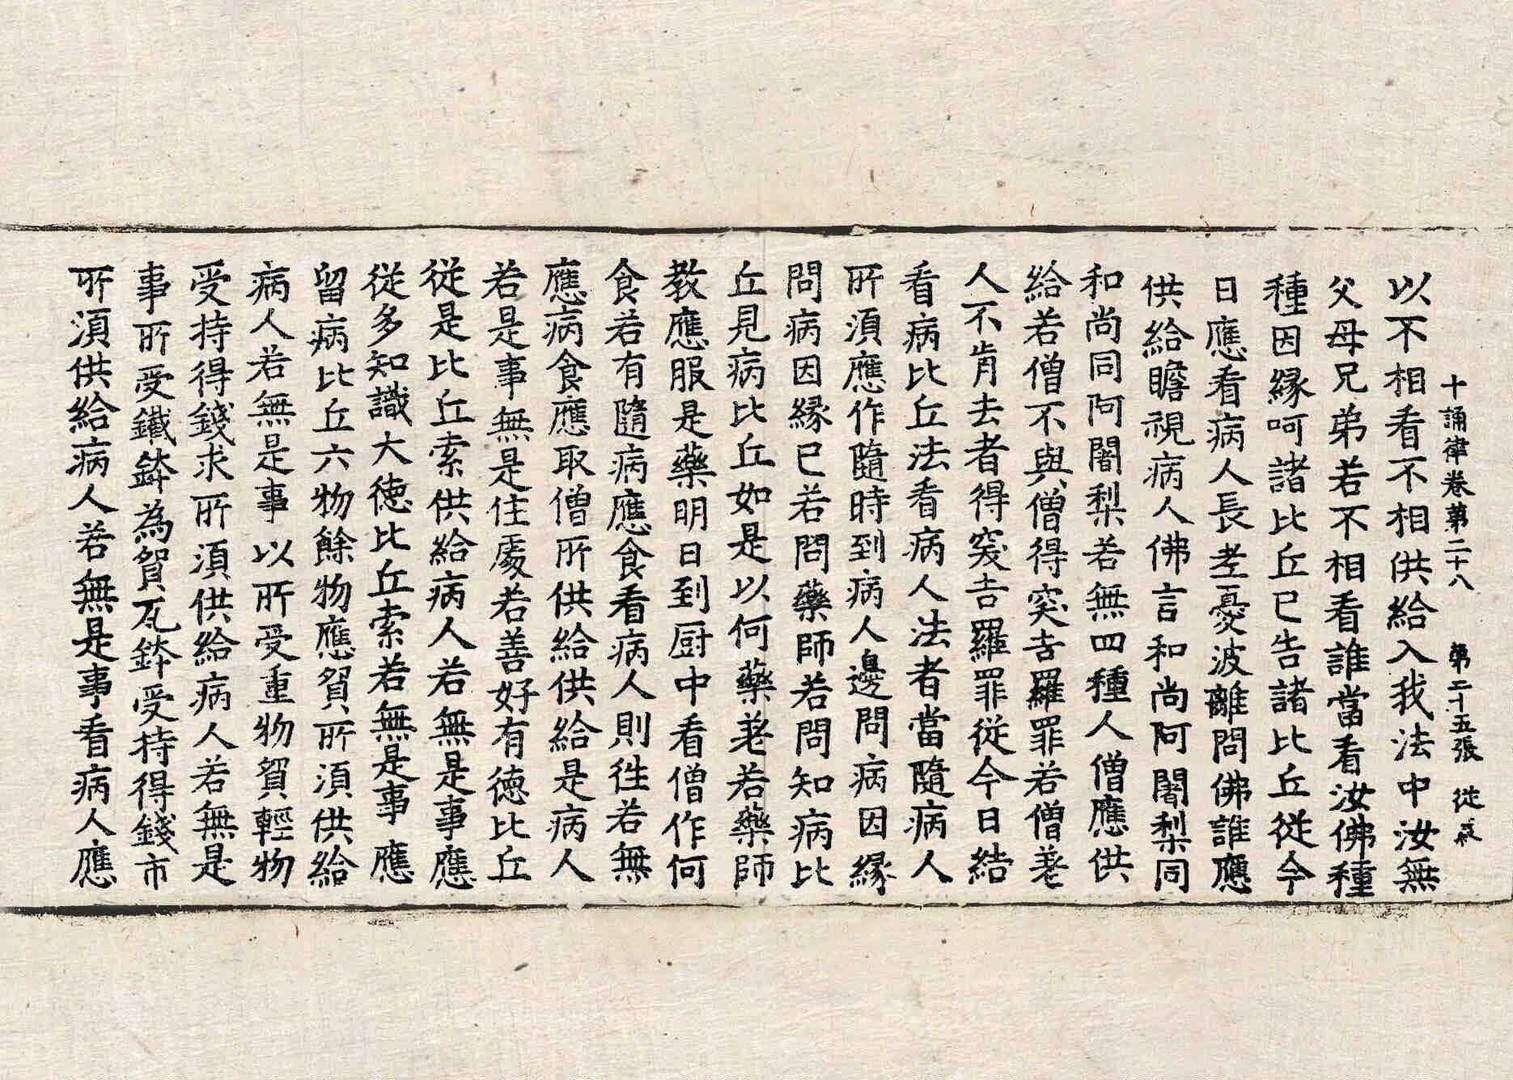 十誦律卷第二十八　第二十五張　從
以不相看不相供給入我法中汝無
父母兄弟若不相看誰當看汝佛種
種因縁呵諸比丘已告諸比丘從今
日應看病人長老憂波離問佛誰應
供給瞻視病人佛言和尚阿闍梨同
和尚同阿闍梨若無四種人僧應供
給若僧不與僧得突吉羅罪若僧差
人不肯去者得突吉羅罪從今日結
看病比丘法看病人法者當隨病人
所須應作隨時到病人邊問病因縁
問病因縁已若問藥師若問知病比
丘見病比丘如是以何藥差若藥師
教應服是藥明日到厨中看僧作何
食若有隨病應食看病人則徃若無
應病食應取僧所供給供給是病人
若是事無是住處若善好有徳比丘
從是比丘索供給病人若無是事應
從多知識大徳比丘索若無是事應
留病比丘六物餘物應貿所須供給
病人若無是事以所受重物貿輕物
受持得錢求所須供給病人若無是
事所受鐵鉢為貿瓦鉢受持得錢市
所須供給病人若無是事看病人應